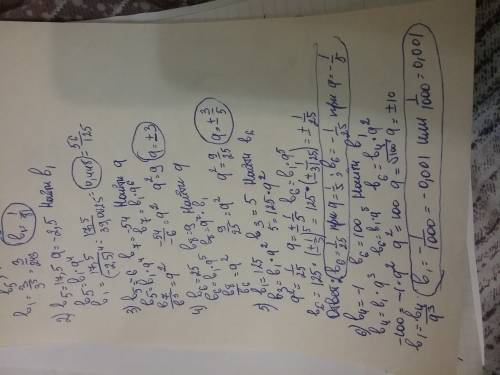 2) b₅=17,5 q=-2,5 Найти b₁
b₅=b₁·q⁴
b₁=17,5/(-2,5)⁴=17,5/39,0625=0,448=56/125
3) b₅=-6 b₇=-54 Найти q
b₅=b₁·q⁴ b₇=b₁·q⁶
b₇/b₅=q² -54/-6=q² q²=9 q=±3
4) b₆=25 b₈=9 Найти q
b₆=b₁·q⁵ b₈=q⁷·b₁
b₈/b₆=q² 9/25=q² q²=9/25 q=±3/5
5) b₁=125 b₃=5 Найти b₆
b₃=b₁·q² 5=125·q²
q²=1/25 q=±1/5 b₆=b₁·q⁵
b₆=125·(±1/5)⁵=125·(±1/3125)=±1/25
Ответ: b₆=1/25 при q=1/5; b₆=-1/25 при q=-1/5
6) b₄=-1 b₆=-100 Найти b₁
b₄=b₁·q³ b₆=b₁·q⁵ b₆=b₄·q²
-100=-1·q² q²=100 q=√100 q=±10
b₁=b₄/q³ b₁=-1/1000=-0,001 или 1/1000=0,001